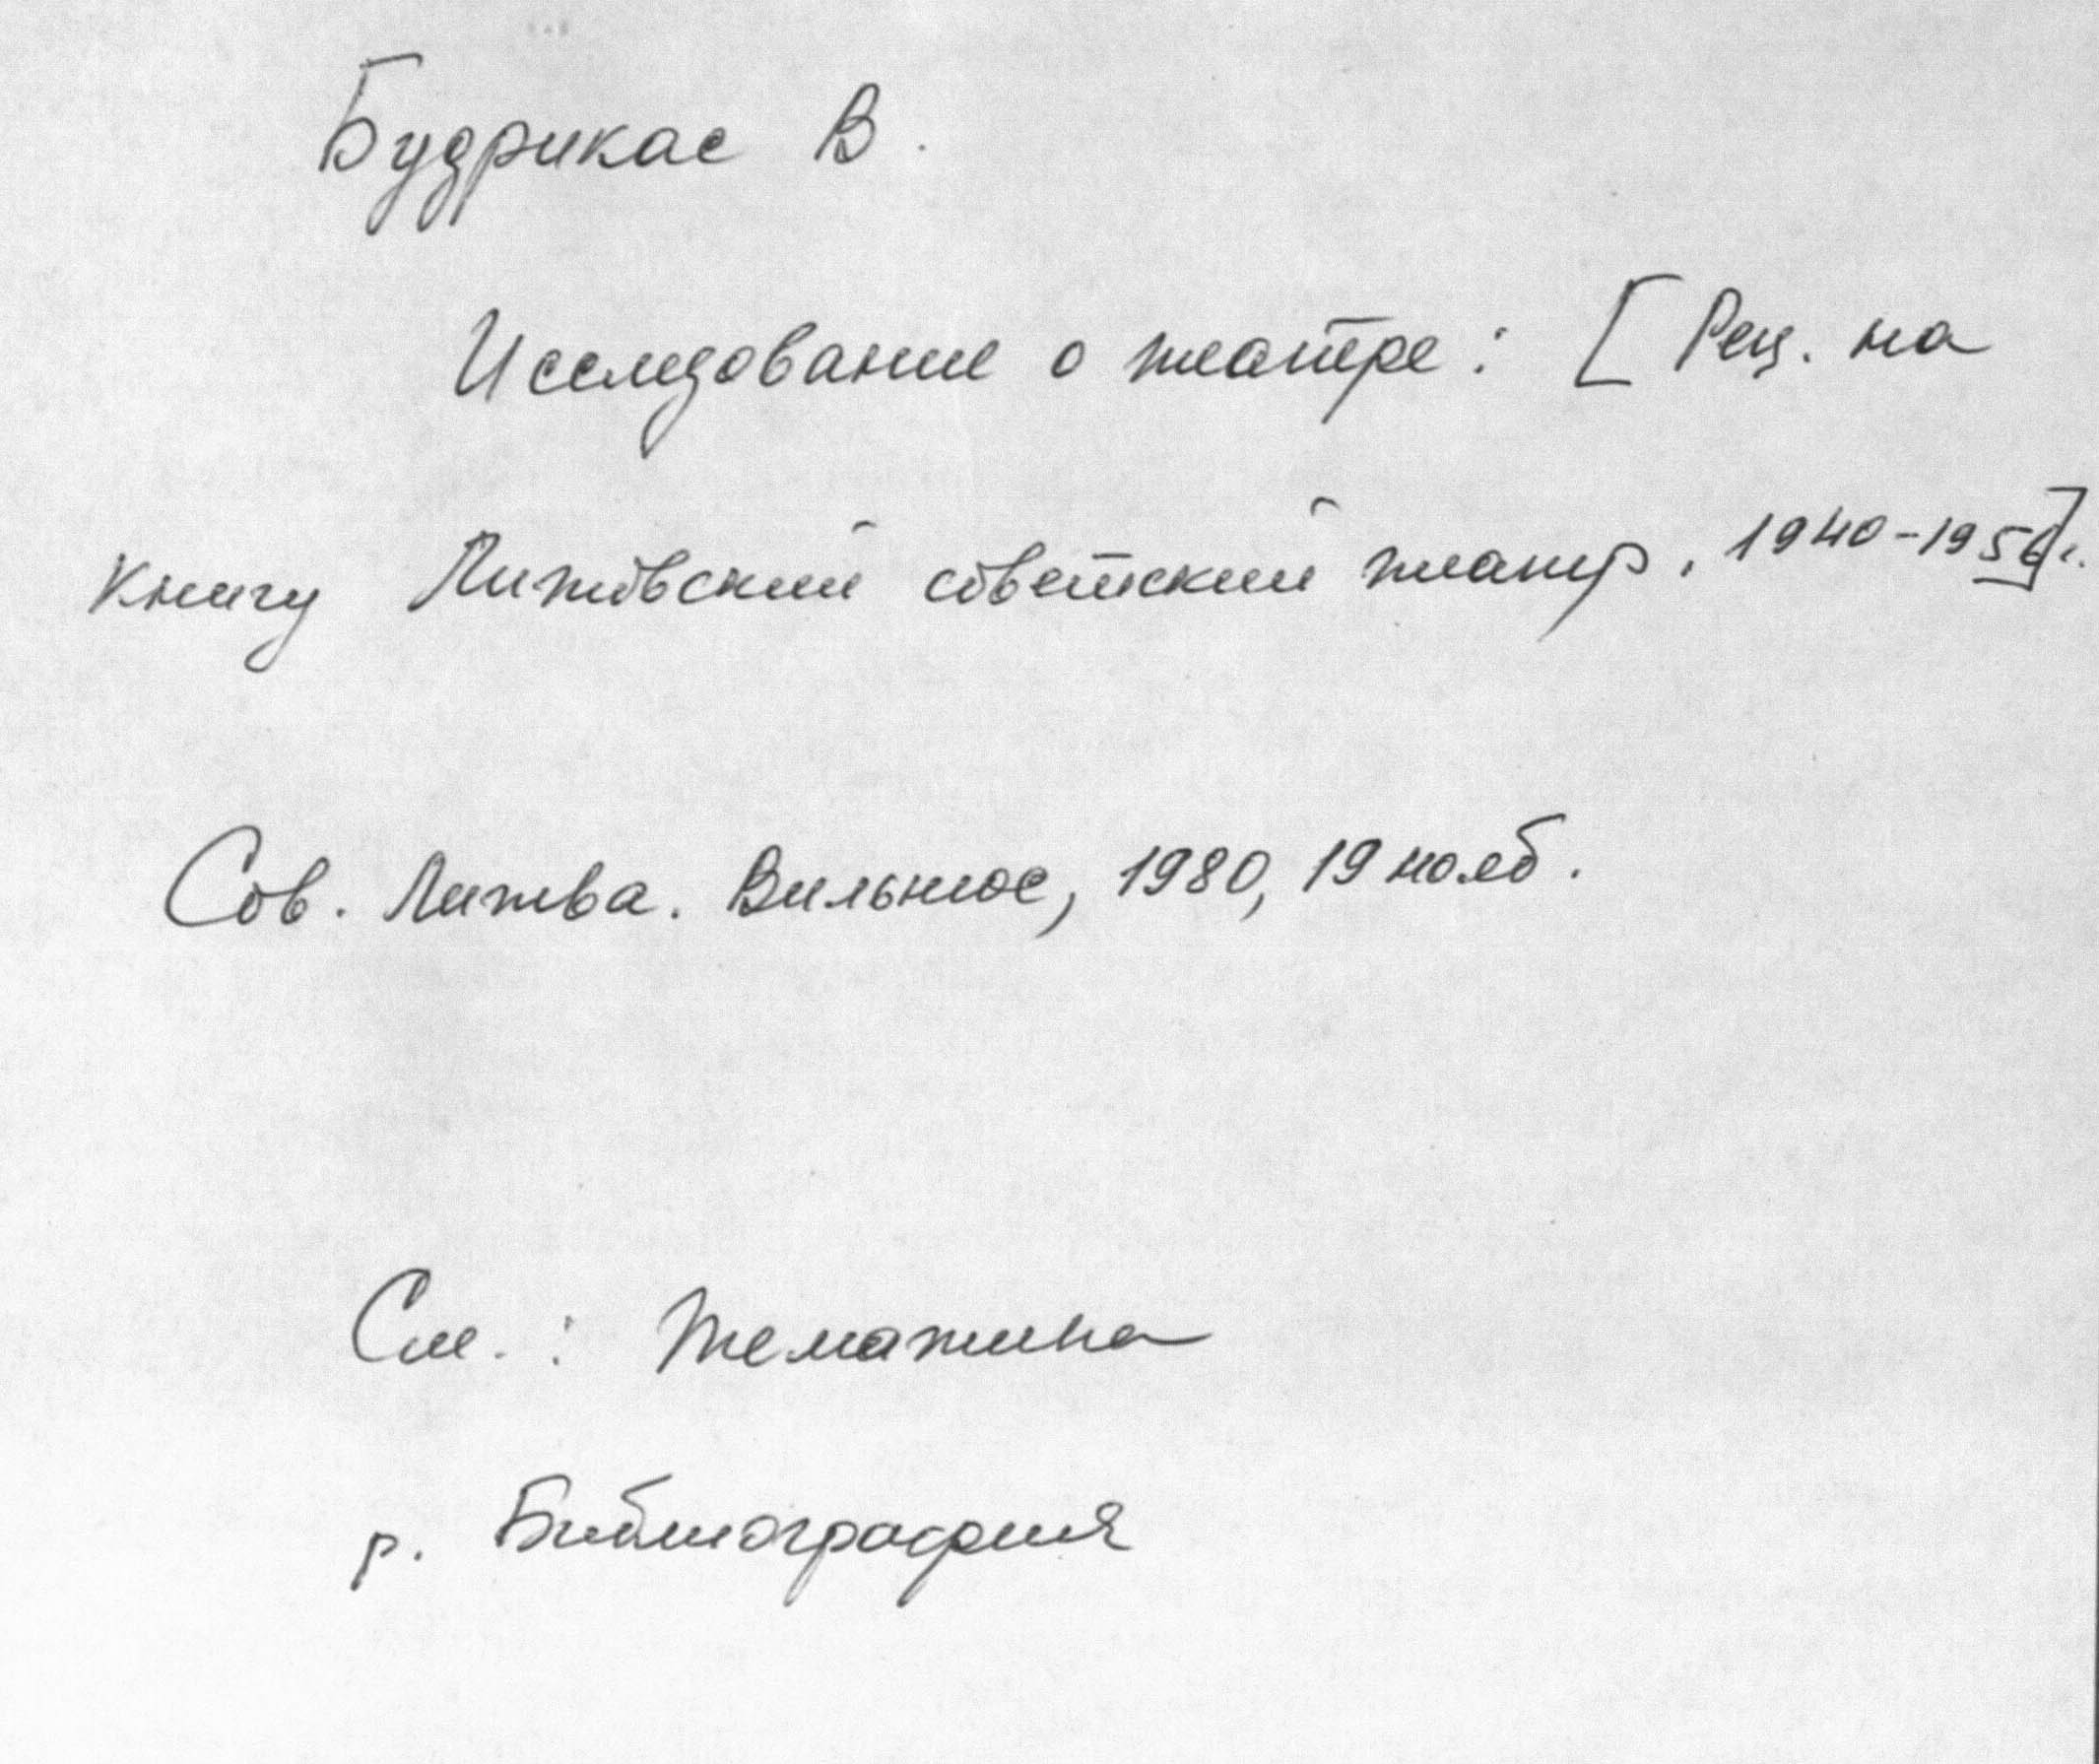 Будрикас В.
Исследование о театре: [Рец. на
книгу Литовский советский театр. 1940-1956]г.
Сов. Литва. Вильнюс, 1980, 19 нояб.
См.: Тематика
р. Библиография